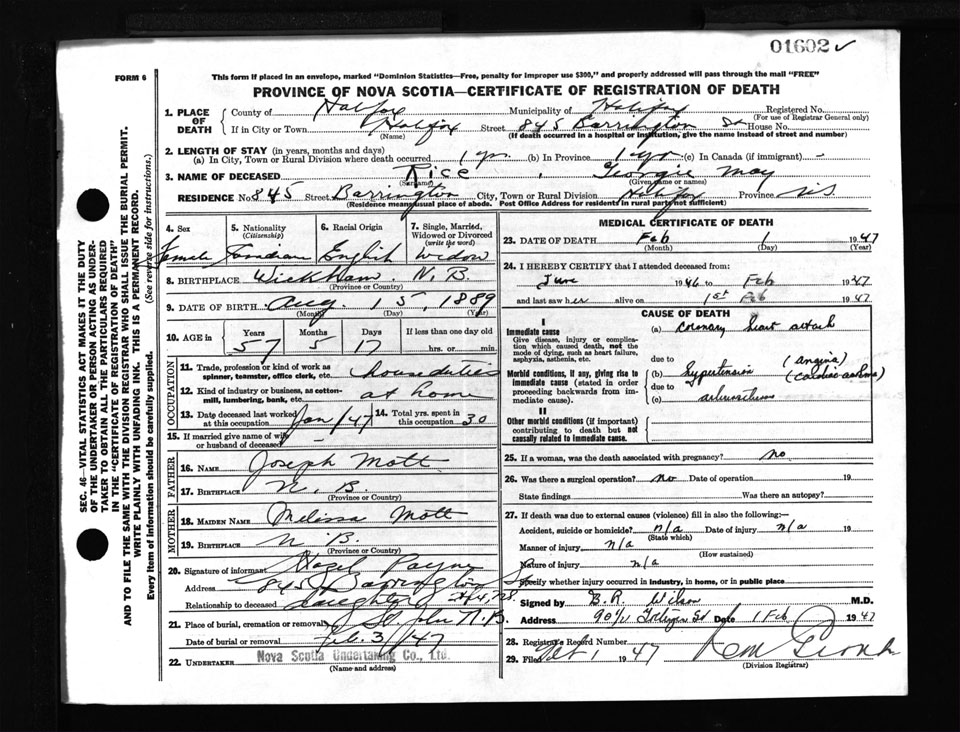 01602 ✓
FORM 6
This form if placed in an envelope, marked "Dominion Statistics—Free, penalty for improper use $300," and properly addressed will pass through the mail "FREE"
PROVINCE OF NOVA SCOTIA—CERTIFICATE OF REGISTRATION OF DEATH
1. PLACE OF DEATH
County of Halifax Municipality of Halifax Registered No.
(For use of Registrar General only)
If in City or Town Halifax Street 845 Barrington St House No.
(Name) (If death occurred in a hospital or institution, give the name instead of street and number)
2. LENGTH OF STAY (in years, months and days)
(a) In City, Town or Rural Division where death occurred 1 yr. (b) In Province 1 yr. (c) In Canada (if immigrant) -
3. NAME OF DECEASED Rice, Georgie May
(Surname) (Given name or names)
RESIDENCE No. 845 Street Barrington City, Town or Rural Division Halifax Province N.S
(Residence means usual place of abode. Post Office Address for residents in rural parts not sufficient)
4. Sex
Female
5. Nationality
(Citizenship)
Canadian
6. Racial Origin
English
7. Single, Married, Widowed or Divorced
(write the word)
Widow
8. BIRTHPLACE Wickham N.B.
(Province or Country)
9. DATE OF BIRTH Aug. 15, 1889
(Month) (Day) (Year)
10. AGE in Years Months Days If less than one day old
57 5 17 hrs. or min.
OCCUPATION
11. Trade, profession or kind of work as spinner, teamster, office clerk, etc. house duties
12. Kind of industry or business, as cotton-mill, lumbering, bank, etc. at home
13. Date deceased last worked at this occupation Jan/47
14. Total yrs. spent in this occupation 30
15. If married give name of wife or husband of deceased -
FATHER
16. NAME Joseph Mott
17. BIRTHPLACE N.B.
(Province or Country)
MOTHER
18. MAIDEN NAME Melissa Mott
19. BIRTHPLACE N.B.
(Province or Country)
20. Signature of informant Hazel Payne
Address 845 Barrington St
Relationship to deceased daughter
21. Place of burial, cremation or removal St. John N.B.
Date of burial or removal Feb. 3/47
22. UNDERTAKER Nova Scotia Undertaking Co., Ltd.
(Name and address)
MEDICAL CERTIFICATE OF DEATH
23. DATE OF DEATH Feb 1 1947
(Month) (Day) (Year)
24. I HEREBY CERTIFY that I attended deceased from:
June 1946 to Feb 1947
and last saw her alive on 1st Feb 1947
CAUSE OF DEATH
I
Immediate cause
Give disease, injury or complication which caused death, not the mode of dying, such as heart failure, asphyxia, asthenia, etc.
(a) coronary heart attack
due to
Morbid conditions, if any, giving rise to immediate cause (stated in order proceeding backwards from immediate cause).
(b) hypertension (angina) (cardiac asthma)
due to
(c)
II
Other morbid conditions (if important) contributing to death but not causally related to immediate cause.
25. If a woman, was the death associated with pregnancy? no
26. Was there a surgical operation? no Date of operation 19
State findings Was there an autopsy?
27. If death was due to external causes (violence) fill in also the following:—
Accident, suicide or homicide? n/a Date of injury n/a 19
(State which)
Manner of injury n/a
(How sustained)
Nature of injury n/a
Specify whether injury occurred in industry, in home, or in public place
Signed by B.R. Wilson M.D.
Address Date 1 Feb 1947
28. Registrar's Record Number
29. Filed Feb 1 1947
(Division Registrar)
SEC. 46—VITAL STATISTICS ACT MAKES IT THE DUTY
OF THE UNDERTAKER OR PERSON ACTING AS UNDER-
TAKER TO OBTAIN ALL THE PARTICULARS REQUIRED
IN THE "CERTIFICATE OF REGISTRATION OF DEATH"
AND TO FILE THE SAME WITH THE DIVISION REGISTRAR WHO SHALL ISSUE THE BURIAL PERMIT.
WRITE PLAINLY WITH UNFADING INK. THIS IS A PERMANENT RECORD.
Every item of information should be carefully supplied. (See reverse side for instructions.)